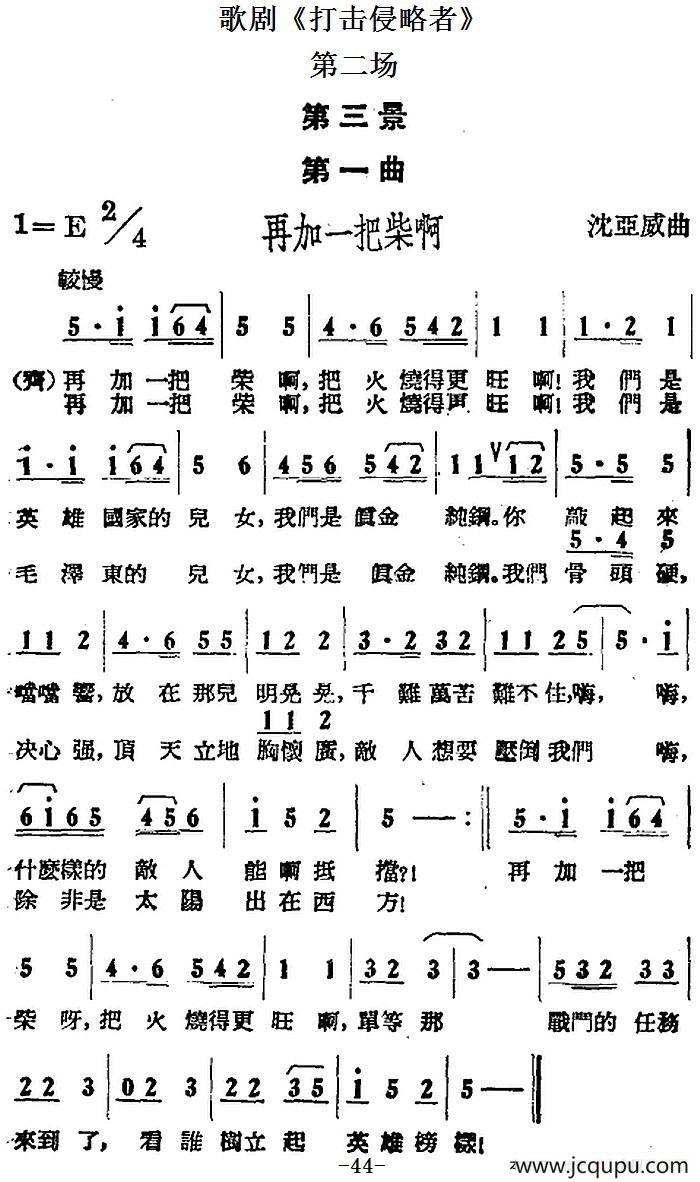 歌剧《打击侵略者》
第二场
第三景
第一曲
1=E 2/4 再加一把柴啊 沈亞威曲
較慢
5·i i64 | 5 5 | 4·6 542 | 1 1 | 1·2 1 |
(齊)再加一把 柴啊,把火燒得更旺啊!我們是
再加一把 柴啊,把火燒得更旺啊!我們是
i·i i64 | 5 6 | 456 542 | 11 V 12 | 5·5 5 |
英雄國家的兒女,我們是真金 純鋼。你 敲起來
5·4 5
毛澤東的 兒女,我們是真金純鋼。我們骨頭硬,
11 2 | 4·6 55 | 12 2 | 3·2 32 | 11 25 | 5·i |
噹噹響,放在那兒明晃晃,千難萬苦難不住,嗨,嗨,
11 2
决心强,頂天立地胸懷廣,敵人想要壓倒我們 嗨,
6i65 456 | i 5 2 | 5 — :‖ 5·i i64 |
什麽樣的敵人 能啊抵擋?! 再加一把
除非是太陽出在西方!
5 5 | 4·6 542 | 1 1 | 32 3 | 3 — | 532 33 |
柴呀,把火燒得更旺啊,單等那 戰鬥的任務
22 3 | 02 3 | 22 35 | i 5 2 | 5 — ‖
來到了,看誰樹立起 英雄榜樣!
-44-
www.jcqupu.com